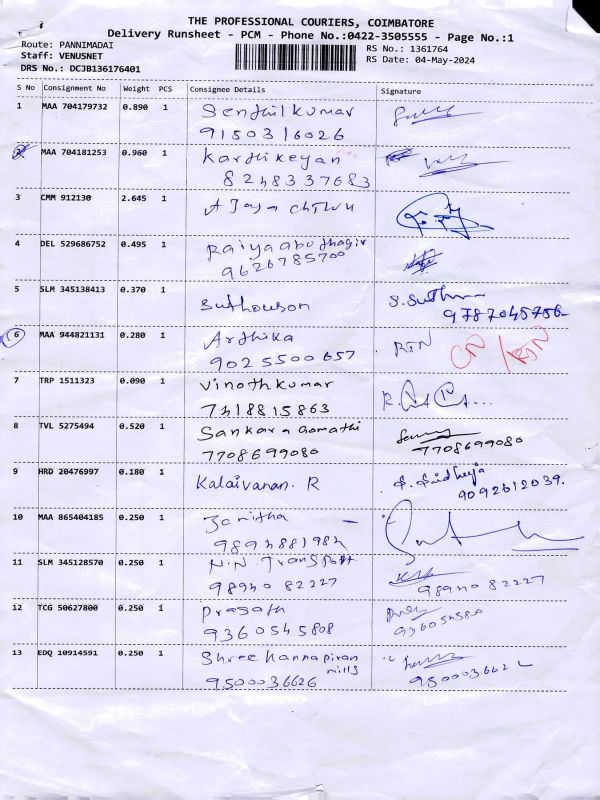 THE PROFESSIONAL COURIERS, COIMBATORE
Delivery Runsheet - PCM - Phone No.:0422-3505555 - Page No.:1
Route: PANNIMADAI
Staff: VENUSNET
DRS No.: DCJB136176401
RS No.: 1361764
RS Date: 04-May-2024
S No Consignment No Weight PCS Consignee Details Signature
1 MAA 704179732 0.890 1 Senthilkumar
9150316026
2 MAA 704181253 0.960 1 Karthikeyan
8248337683
3 CMM 912130 2.645 1 A Jaya
4 DEL 529686752 0.495 1
9626785700
5 SLM 345138413 0.370 1 Suthouson S. Suth
9787045756
6 MAA 944821131 0.280 1 Arthika RTN CN/RTN
9025500657
7 TRP 1511323 0.090 1 Vinothkumar
7418815863
8 TVL 5275494 0.520 1 Sankara Gomathi
7708699080 7708699080
9 HRD 20476997 0.180 1 Kalaivanan. R
9092612039.
10 MAA 865404185 0.250 1 Janitha
9894881984
11 SLM 345128570 0.250 1 N.N Transport
98940 82227 98940 82227
12 TCG 50627800 0.250 1 Prasath
9360545808
13 EDQ 10914591 0.250 1 Shree Kannapiran
mills
9500036626